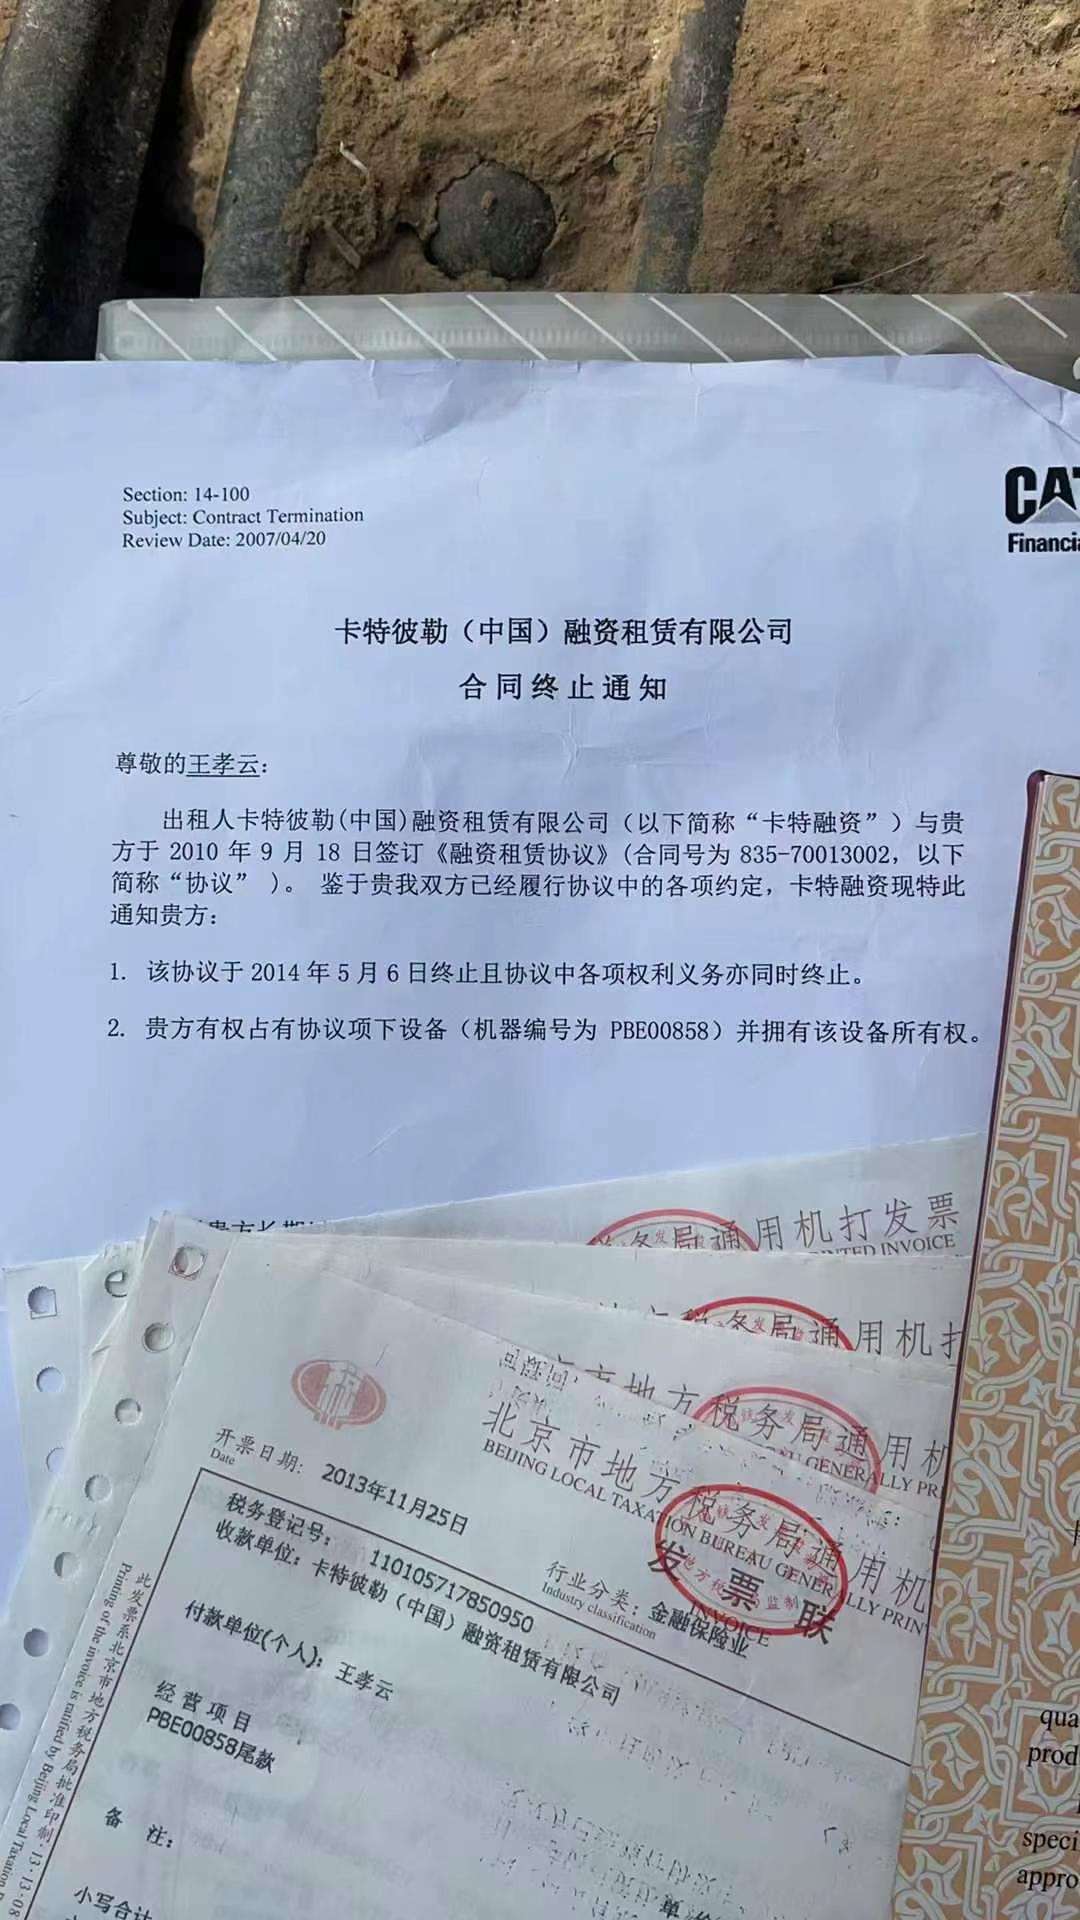 Section: 14-100
Subject: Contract Termination
Review Date: 2007/04/20
CAT
Financia
卡特彼勒（中国）融资租赁有限公司
合同终止通知
尊敬的王孝云：
出租人卡特彼勒(中国)融资租赁有限公司（以下简称“卡特融资”）与贵
方于 2010 年 9 月 18 日签订《融资租赁协议》(合同号为 835-70013002，以下
简称“协议” )。 鉴于贵我双方已经履行协议中的各项约定，卡特融资现特此
通知贵方：
1. 该协议于 2014 年 5 月 6 日终止且协议中各项权利义务亦同时终止。
2. 贵方有权占有协议项下设备（机器编号为 PBE00858）并拥有该设备所有权。
贵方长期
务局通用机打发票
INTED INVOICE
税务局通用机打
市地方税务局通用机
GENERALLY PR
北京市地方税务局通用机
BEIJING LOCAL TAXATION BUREAU GENERALLY PRIN
发票联
INVOICE
开票日期: 2013年11月25日
Date
行业分类：金融保险业
Industry classification
税务登记号：110105717850950
收款单位：卡特彼勒（中国）融资租赁有限公司
付款单位(个人)：王孝云
经营项目
PBE00858尾款
备 注：
小写合计
此发票系北京市地方税务局批准印制·13·13·08
Printing of the invoice is ratified by Beijing Local Taxation
qua
prod
speci
appro